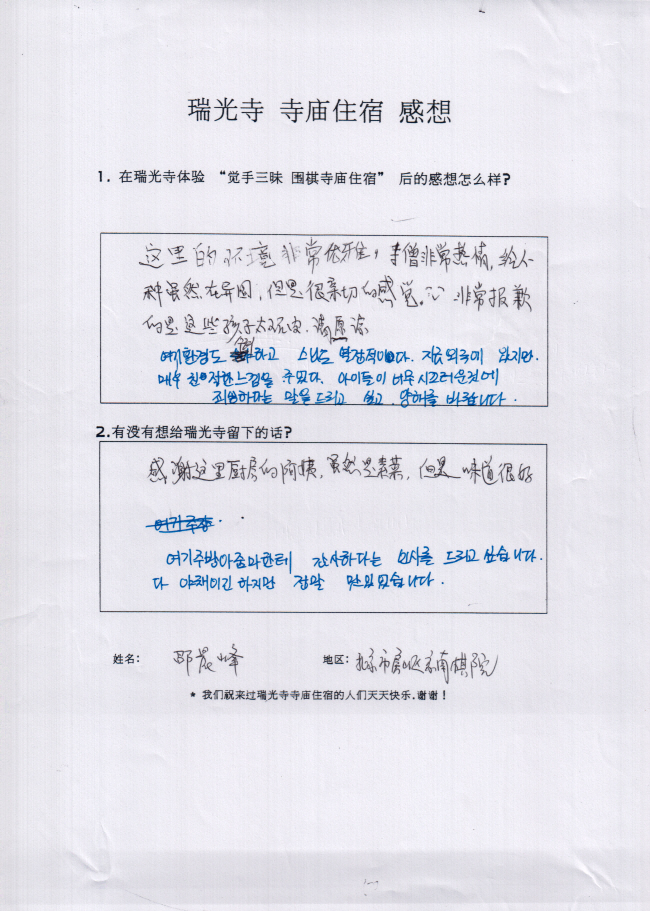 瑞光寺 寺庙住宿 感想
1. 在瑞光寺体验 “觉手三昧 围棋寺庙住宿” 后的感想怎么样?
这里的环境非常优雅，李僧非常热情，给人一
种虽然在异国，但是很亲切的感觉。 非常报歉
的是这些孩子太玩皮，请原谅
여기환경도 하고 스님도 열정적이다. 지금 외국에 왔지만.
매우 친절한 느낌을 주었다. 아이들이 너무 시끄러운것에
죄송하다는 말을 드리고 싶고 양해를 바랍니다.
2.有没有想给瑞光寺留下的话?
感谢这里厨房的阿姨，虽然是素菜，但是 味道很好
여기주방아줌마한테 감사하다는 인사를 드리고 싶습니다.
다 야채이긴 하지만 정말 맛있었습니다.
姓名: 晨峰 地区: 北京市 京南棋院
* 我们祝来过瑞光寺寺庙住宿的人们天天快乐.谢谢!